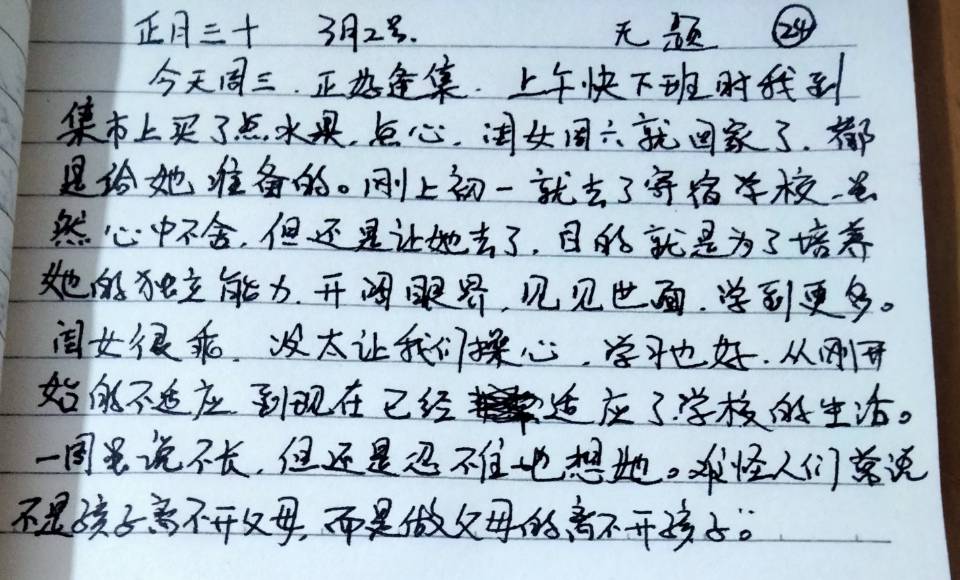 正月三十 3月2号. 无题 24
今天周三.正好逢集.上午快下班时我到
集市上买了点水果,点心,闺女周六就回家了.都
是给她准备的。刚上初一就去了寄宿学校.虽
然心中不舍,但还是让她去了,目的就是为了培养
她的独立能力.开阔眼界,见见世面.学到更多。
闺女很乖.没太让我们操心,学习也好.从刚开
始的不适应.到现在已经适应了学校的生活。
一周虽说不长,但还是忍不住地想她。难怪人们常说
不是孩子离不开父母,而是做父母的离不开孩子。